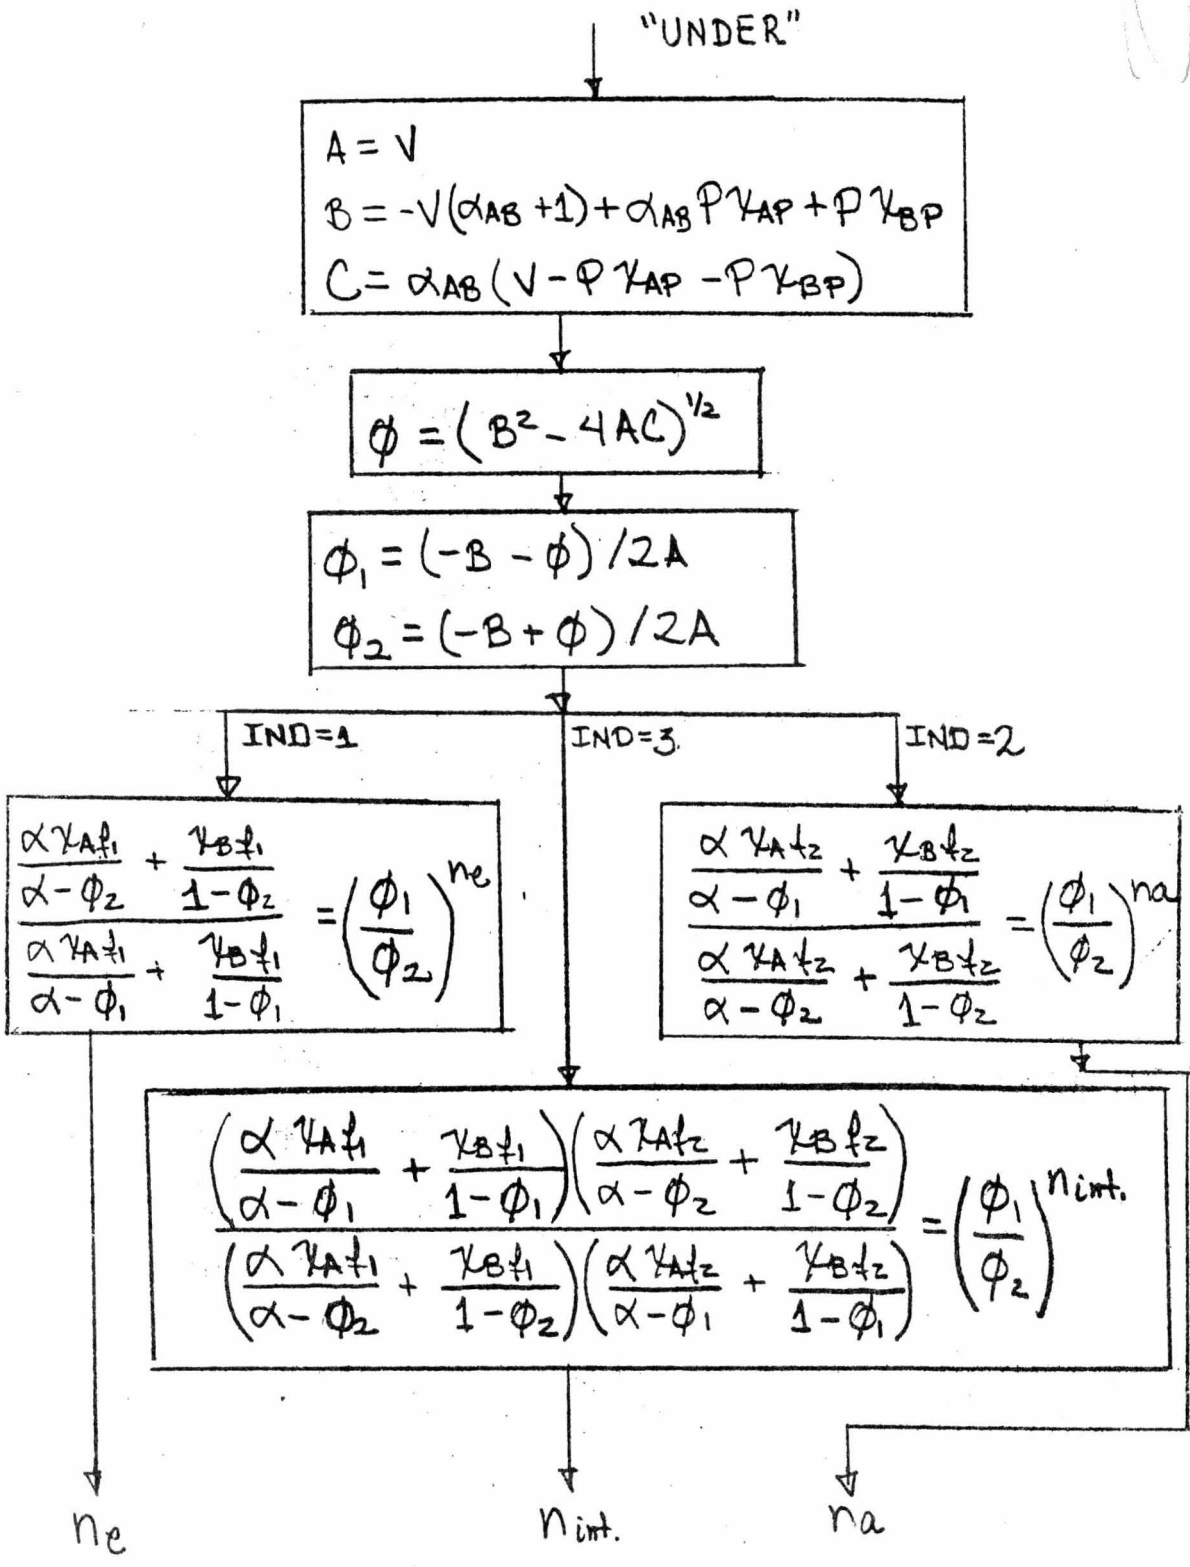 "UNDER"
A = V
B = -V(αAB +1) + αAB P XAP + P XBP
C = αAB (V - P XAP - P XBP)
ϕ = (B² - 4AC)^1/2
ϕ1 = (-B - ϕ) /2A
ϕ2 = (-B + ϕ) /2A
IND=1 IND=3. IND=2
((α XAf1)/(α - ϕ2) + (XBf1)/(1 - ϕ2)) / ((α XAf1)/(α - ϕ1) + (XBf1)/(1 - ϕ1)) = (ϕ1/ϕ2)^ne
((α XAf2)/(α - ϕ1) + (XBf2)/(1 - ϕ1)) / ((α XAf2)/(α - ϕ2) + (XBf2)/(1 - ϕ2)) = (ϕ1/ϕ2)^na
((α XAf1)/(α - ϕ1) + (XBf1)/(1 - ϕ1)) ((α XAf2)/(α - ϕ2) + (XBf2)/(1 - ϕ2)) / ((α XAf1)/(α - ϕ2) + (XBf1)/(1 - ϕ2)) ((α XAf2)/(α - ϕ1) + (XBf2)/(1 - ϕ1)) = (ϕ1/ϕ2)^nint.
ne nint. na